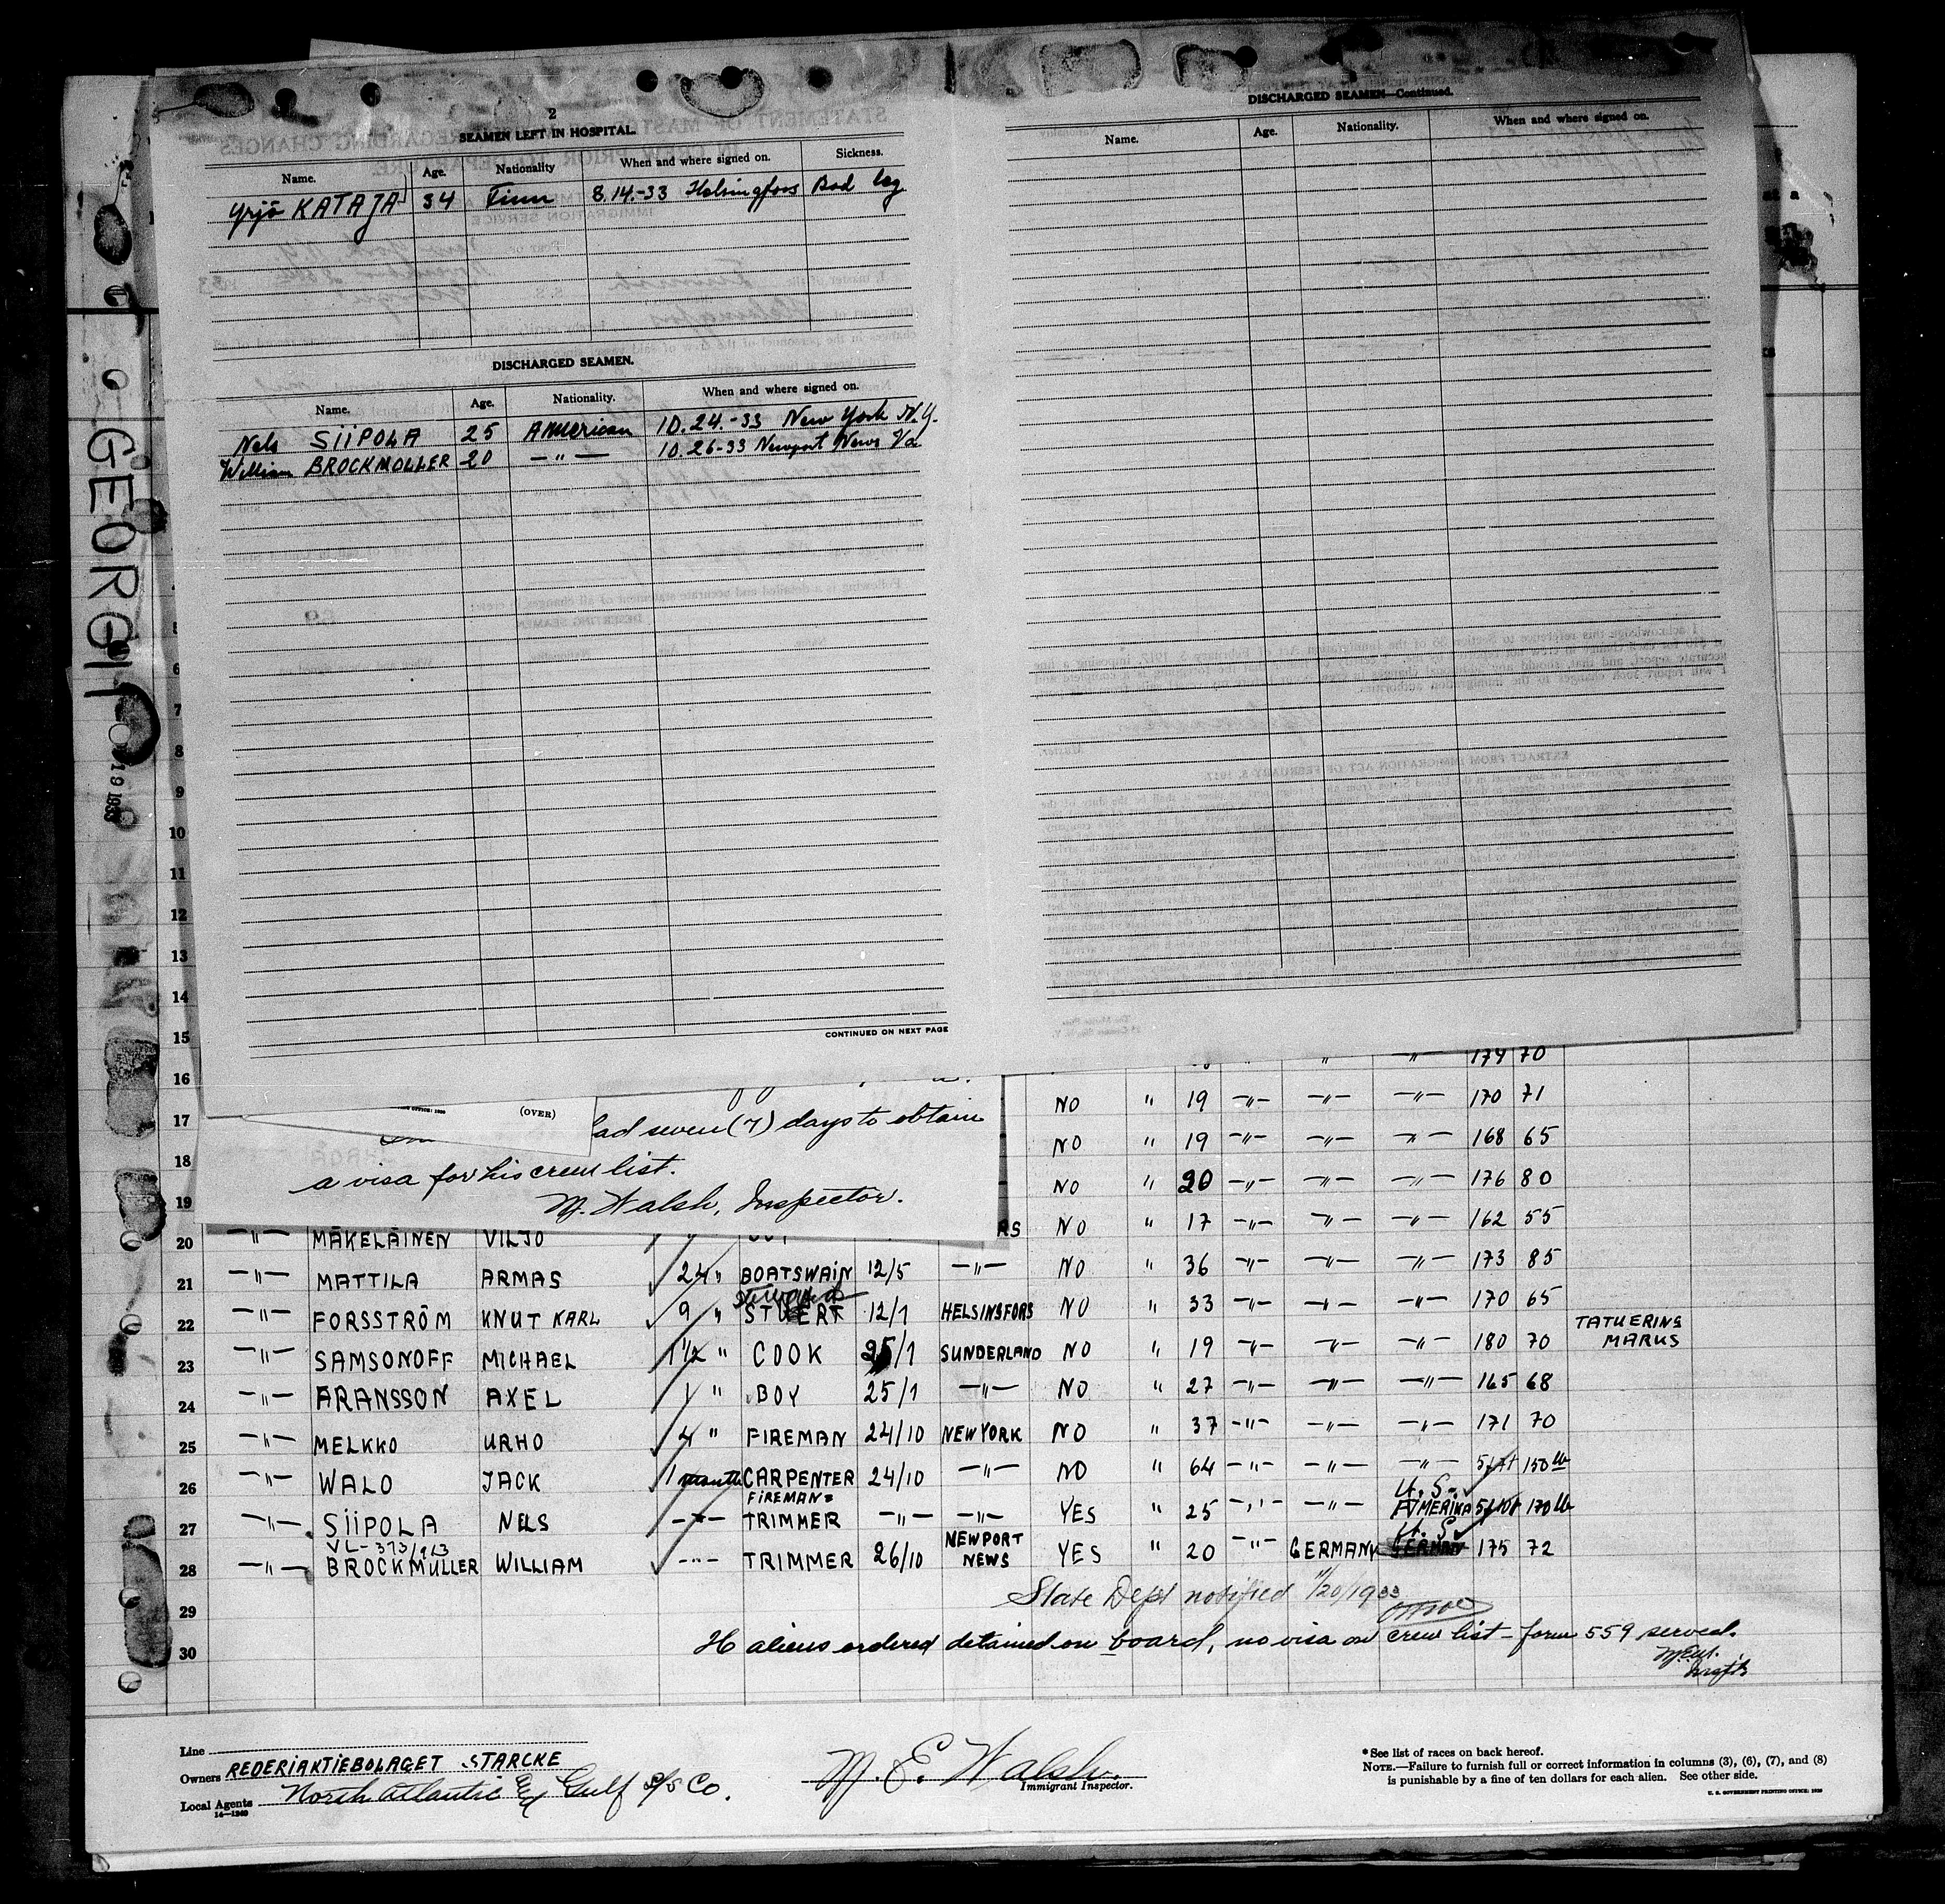 2
SEAMEN LEFT IN HOSPITAL.
Name. Age. Nationality When and where signed on. Sickness.
Yrjö KATAJA 34 Finn 8.14.-33 Helsingfors Bad leg
DISCHARGED SEAMEN.
Name. Age. Nationality. When and where signed on.
Nels SIIPOLA 25 American 10.24.-33 New York N.Y.
William BROCKMOLLER 20 —"— 10.26-33 Newport News Va
CONTINUED ON NEXT PAGE
DISCHARGED SEAMEN—Continued.
Name. Age. Nationality. When and where signed on.
GEORGI
19 1933
6
7
8
9
10
11
12
13
14
15
—"— —"— 174 70
16 NO " 19 —"— —"— —"— 170 71
(OVER)
17 NO " 19 —"— —"— —"— 168 65
had seven (7) days to obtain
a visa for his crew list.
M. Walsh, Inspector.
18 NO " 20 —"— —"— —"— 176 80
19 RS NO " 17 —"— —"— —"— 162 55
20 —"— MÄKELÄINEN VILJO
21 —"— MATTILA ARMAS 24 " BOATSWAIN 12/5 —"— NO " 36 —"— —"— —"— 173 85
22 —"— FORSSTRÖM KNUT KARL 9 " Steward STUERT 12/1 HELSINGFORS NO " 33 —"— —"— —"— 170 65
23 —"— SAMSONOFF MICHAEL 1½ " COOK 25/1 SUNDERLAND NO " 19 —"— —"— —"— 180 70 TATUERING MARKS
24 —"— ARANSSON AXEL 1 " BOY 25/1 —"— NO " 27 —"— —"— —"— 165 68
25 —"— MELKKO URHO 4 " FIREMAN 24/10 NEW YORK NO " 37 —"— —"— —"— 171 70
26 —"— WALO JACK 1 month CARPENTER 24/10 —"— NO " 64 —"— —"— —"— 150 lb
27 —"— SIIPOLA NELS —"— FIREMAN= TRIMMER —"— —"— YES " 25 —"— —"— U.S. AMERIKA 170 lb
VL-373/963
28 —"— BROCKMÜLLER WILLIAM —"— TRIMMER 26/10 NEWPORT NEWS YES " 20 —"— GERMANY U.S. GERMAN 175 72
29 State Dept notified 11/20/1933
30 H aliens ordered detained on board, no visa on crew list – form 559 served.
Line
Owners REDERIAKTIEBOLAGET STARCKE
Local Agents North Atlantic & Gulf S/S Co.
14—1240
M. E. Walsh.
Immigrant Inspector.
*See list of races on back hereof.
NOTE.—Failure to furnish full or correct information in columns (3), (6), (7), and (8)
is punishable by a fine of ten dollars for each alien. See other side.
U. S. GOVERNMENT PRINTING OFFICE: 1930